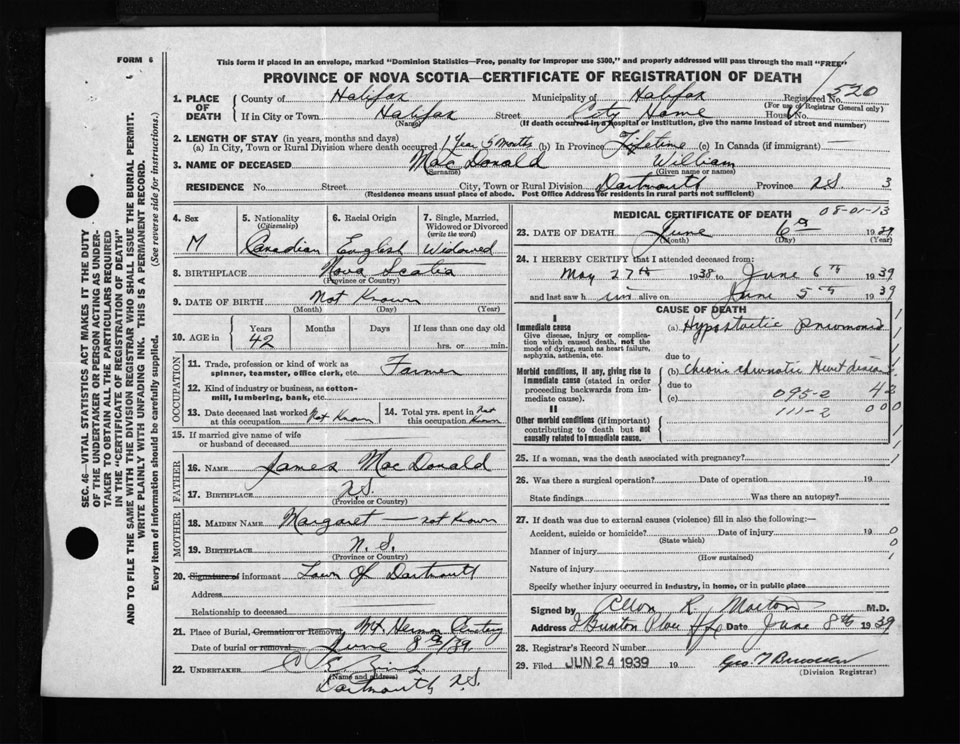 FORM 6
This form if placed in an envelope, marked "Dominion Statistics—Free, penalty for improper use $300," and properly addressed will pass through the mail "FREE"
PROVINCE OF NOVA SCOTIA—CERTIFICATE OF REGISTRATION OF DEATH
1. PLACE OF DEATH { County of Halifax Municipality of Halifax Registered No. 520
(For use of Registrar General only)
If in City or Town Halifax Street City Home House
(Name) (If death occurred in a hospital or institution, give the name instead of street and number)
2. LENGTH OF STAY (in years, months and days)
(a) In City, Town or Rural Division where death occurred 1 Year 5 months (b) In Province Lifetime (c) In Canada (if immigrant) —
3. NAME OF DECEASED Mac Donald William
(Surname) (Given name or names)
RESIDENCE No. Street City, Town or Rural Division Dartmouth Province N.S. 3
(Residence means usual place of abode. Post Office Address for residents in rural parts not sufficient)
4. Sex M
5. Nationality (Citizenship) Canadian
6. Racial Origin English
7. Single, Married, Widowed or Divorced (write the word) Widowed
8. BIRTHPLACE Nova Scotia
(Province or Country)
9. DATE OF BIRTH Not Known
(Month) (Day) (Year)
10. AGE in { Years 42 Months Days If less than one day old
hrs. or min.
OCCUPATION
11. Trade, profession or kind of work as spinner, teamster, office clerk, etc. Farmer
12. Kind of industry or business, as cotton-mill, lumbering, bank, etc.
13. Date deceased last worked at this occupation Not Known
14. Total yrs. spent in this occupation Not Known
15. If married give name of wife or husband of deceased
FATHER
16. NAME James Mac Donald
17. BIRTHPLACE N.S.
(Province or Country)
MOTHER
18. MAIDEN NAME Margaret — not Known
19. BIRTHPLACE N. S.
(Province or Country)
20. Signature of informant Town Of Dartmouth
Address
Relationship to deceased
21. Place of Burial, Cremation or Removal Mt Hermon Cemetery
Date of burial or removal June 8th/39.
22. UNDERTAKER
(Name and address)
Dartmouth N.S.
MEDICAL CERTIFICATE OF DEATH 08-01-13
23. DATE OF DEATH June 6th 1939
(Month) (Day) (Year)
24. I HEREBY CERTIFY that I attended deceased from:
May 27th 1938 to June 6th 1939
and last saw h im alive on June 5th 1939
CAUSE OF DEATH
I
Immediate cause
Give disease, injury or complication which caused death, not the mode of dying, such as heart failure, asphyxia, asthenia, etc.
(a) Hypostatic pneumonia
due to
Morbid conditions, if any, giving rise to immediate cause (stated in order proceeding backwards from immediate cause).
(b) Chronic rheumatic Heart disease
due to
(c) 095-2 42
111-2 000
II
Other morbid conditions (if important) contributing to death but not causally related to immediate cause.
25. If a woman, was the death associated with pregnancy?
26. Was there a surgical operation? Date of operation 19
State findings Was there an autopsy?
27. If death was due to external causes (violence) fill in also the following:—
Accident, suicide or homicide? Date of injury 19 0
(State which) 0
Manner of injury 1
(How sustained)
Nature of injury
Specify whether injury occurred in industry, in home, or in public place
Signed by R. Morton M.D.
Address Place Hfx Date June 8th 1939
28. Registrar's Record Number
29. Filed JUN 24 1939 19 Geo. T
(Division Registrar)
SEC. 46—VITAL STATISTICS ACT MAKES IT THE DUTY
OF THE UNDERTAKER OR PERSON ACTING AS UNDER-
TAKER TO OBTAIN ALL THE PARTICULARS REQUIRED
IN THE "CERTIFICATE OF REGISTRATION OF DEATH"
AND TO FILE THE SAME WITH THE DIVISION REGISTRAR WHO SHALL ISSUE THE BURIAL PERMIT.
WRITE PLAINLY WITH UNFADING INK. THIS IS A PERMANENT RECORD.
Every item of information should be carefully supplied. (See reverse side for instructions.)